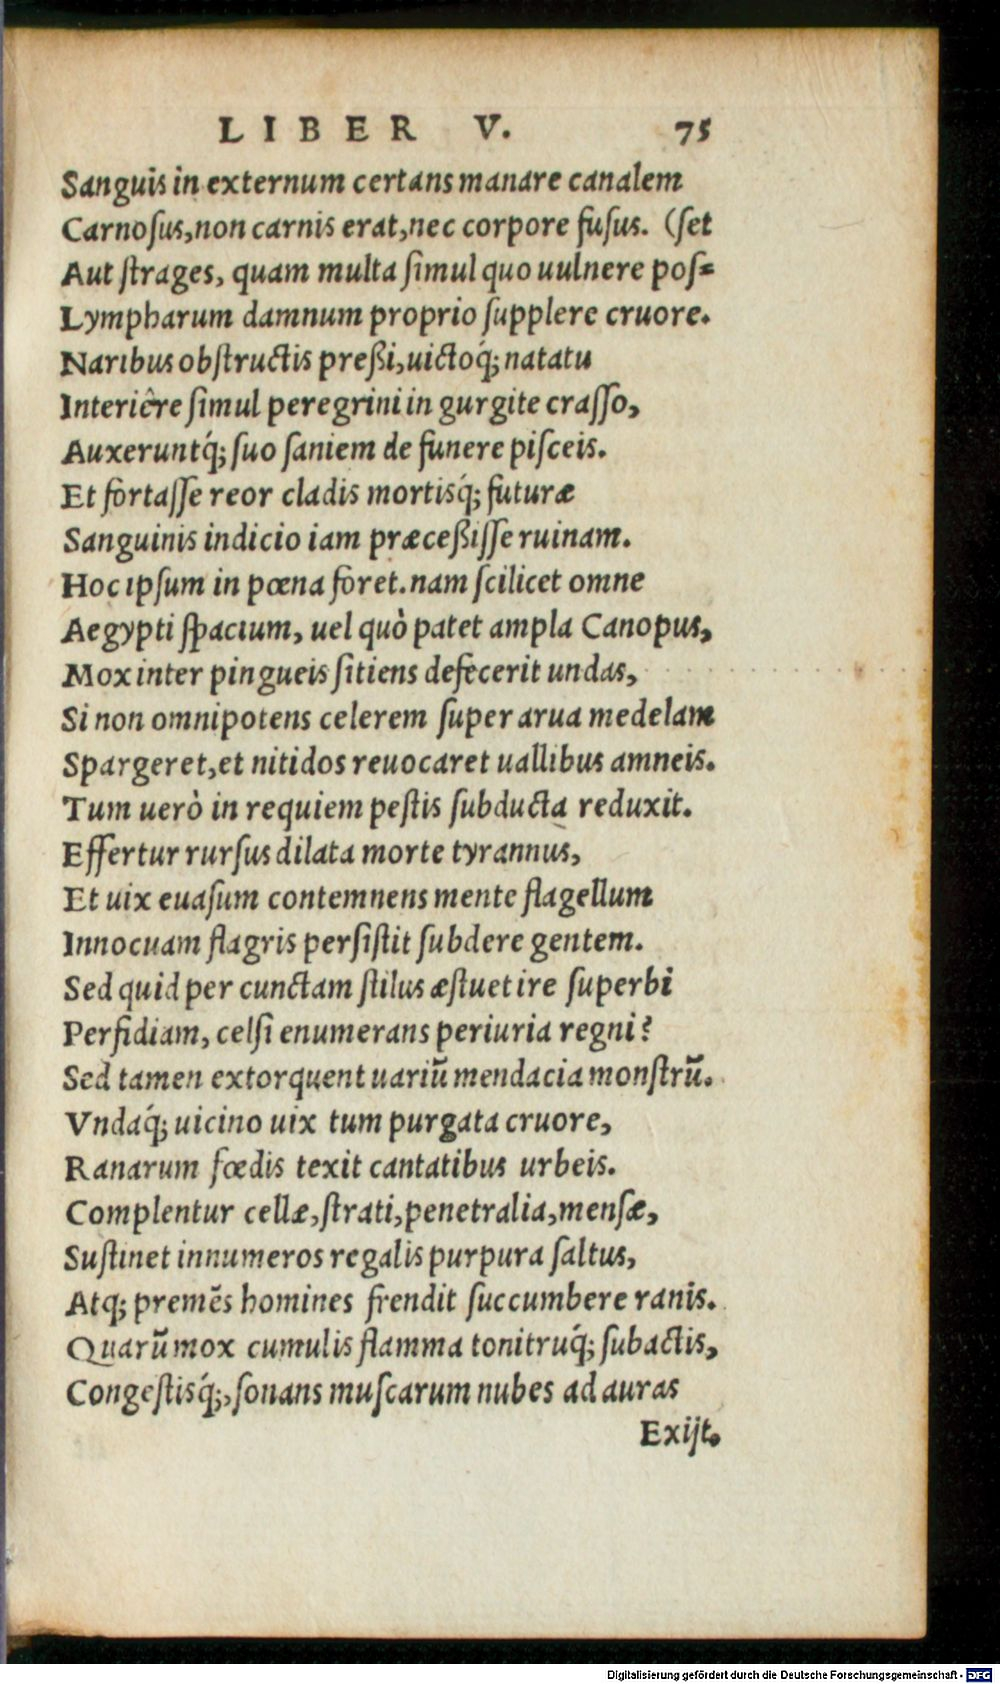 LIBER V. 75
Sanguis in externum certans manare canalem
Carnosus, non carnis erat, nec corpore fusus. (set
Aut strages, quam multa simul quo uulnere pos=
Lympharum damnum proprio supplere cruore.
Naribus obstructis preßi, uictoq́; natatu
Interiêre simul peregrini in gurgite crasso,
Auxeruntq́; suo saniem de funere pisceis.
Et fortasse reor cladis mortisq́; futuræ
Sanguinis indicio iam præceßisse ruinam.
Hoc ipsum in pœna foret. nam scilicet omne
Aegypti spacium, uel quò patet ampla Canopus,
Mox inter pingueis sitiens defecerit undas,
Si non omnipotens celerem super arua medelam
Spargeret, et nitidos reuocaret uallibus amneis.
Tum uerò in requiem pestis subducta reduxit.
Effertur rursus dilata morte tyrannus,
Et uix euasum contemnens mente flagellum
Innocuam flagris persistit subdere gentem.
Sed quid per cunctam stilus æstuet ire superbi
Perfidiam, celsi enumerans periuria regni?
Sed tamen extorquent uariū mendacia monstrū.
Vndaq́; uicino uix tum purgata cruore,
Ranarum fœdis texit cantatibus urbeis.
Complentur cellæ, strati, penetralia, mensæ,
Sustinet innumeros regalis purpura saltus,
Atq; premēs homines frendit succumbere ranis.
Quarū mox cumulis flamma tonitruq́; subactis,
Congestisq́;, sonans muscarum nubes ad auras
Exijt.
Digitalisierung gefördert durch die Deutsche Forschungsgemeinschaft - DFG